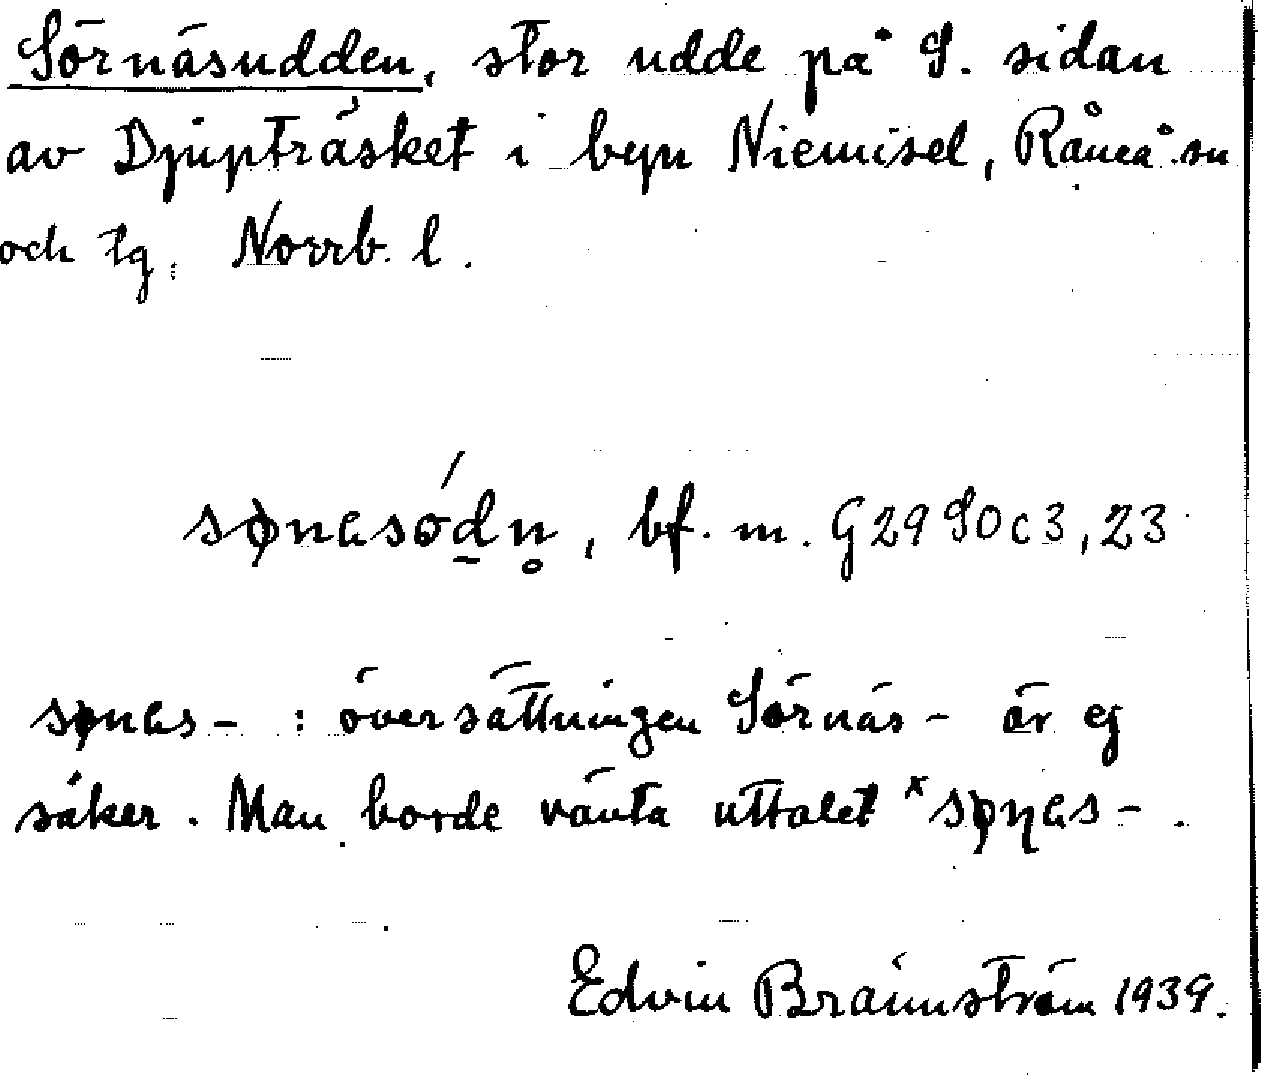 Sörnäsudden, stor udde på S. sidan
av Djupträsket i byn Niemisel, Råneå sn
och tg. Norrb. l.
sønasódn̥, bf. m. G29 SO c 3, 23
sønas- : översättningen Sörnäs- är ej
säker. Man borde vänta uttalet ˣsøɳas- .
Edwin Brännström 1939.